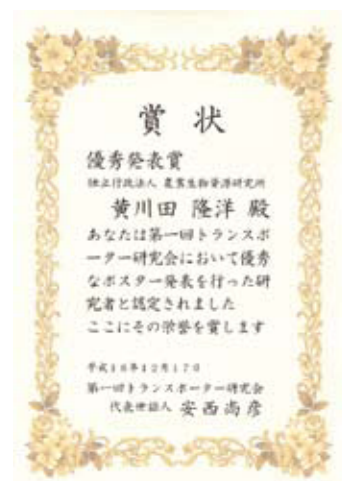 賞状
優秀発表賞
独立行政法人 農業生物資源研究所
黄川田 隆洋 殿
あなたは第一回トランスポ
ーター研究会において優秀
なポスター発表を行った研
究者と認定されました
ここにその栄誉を賞します
平成18年12月17日
第一回トランスポーター研究会
代表世話人 安西尚彦